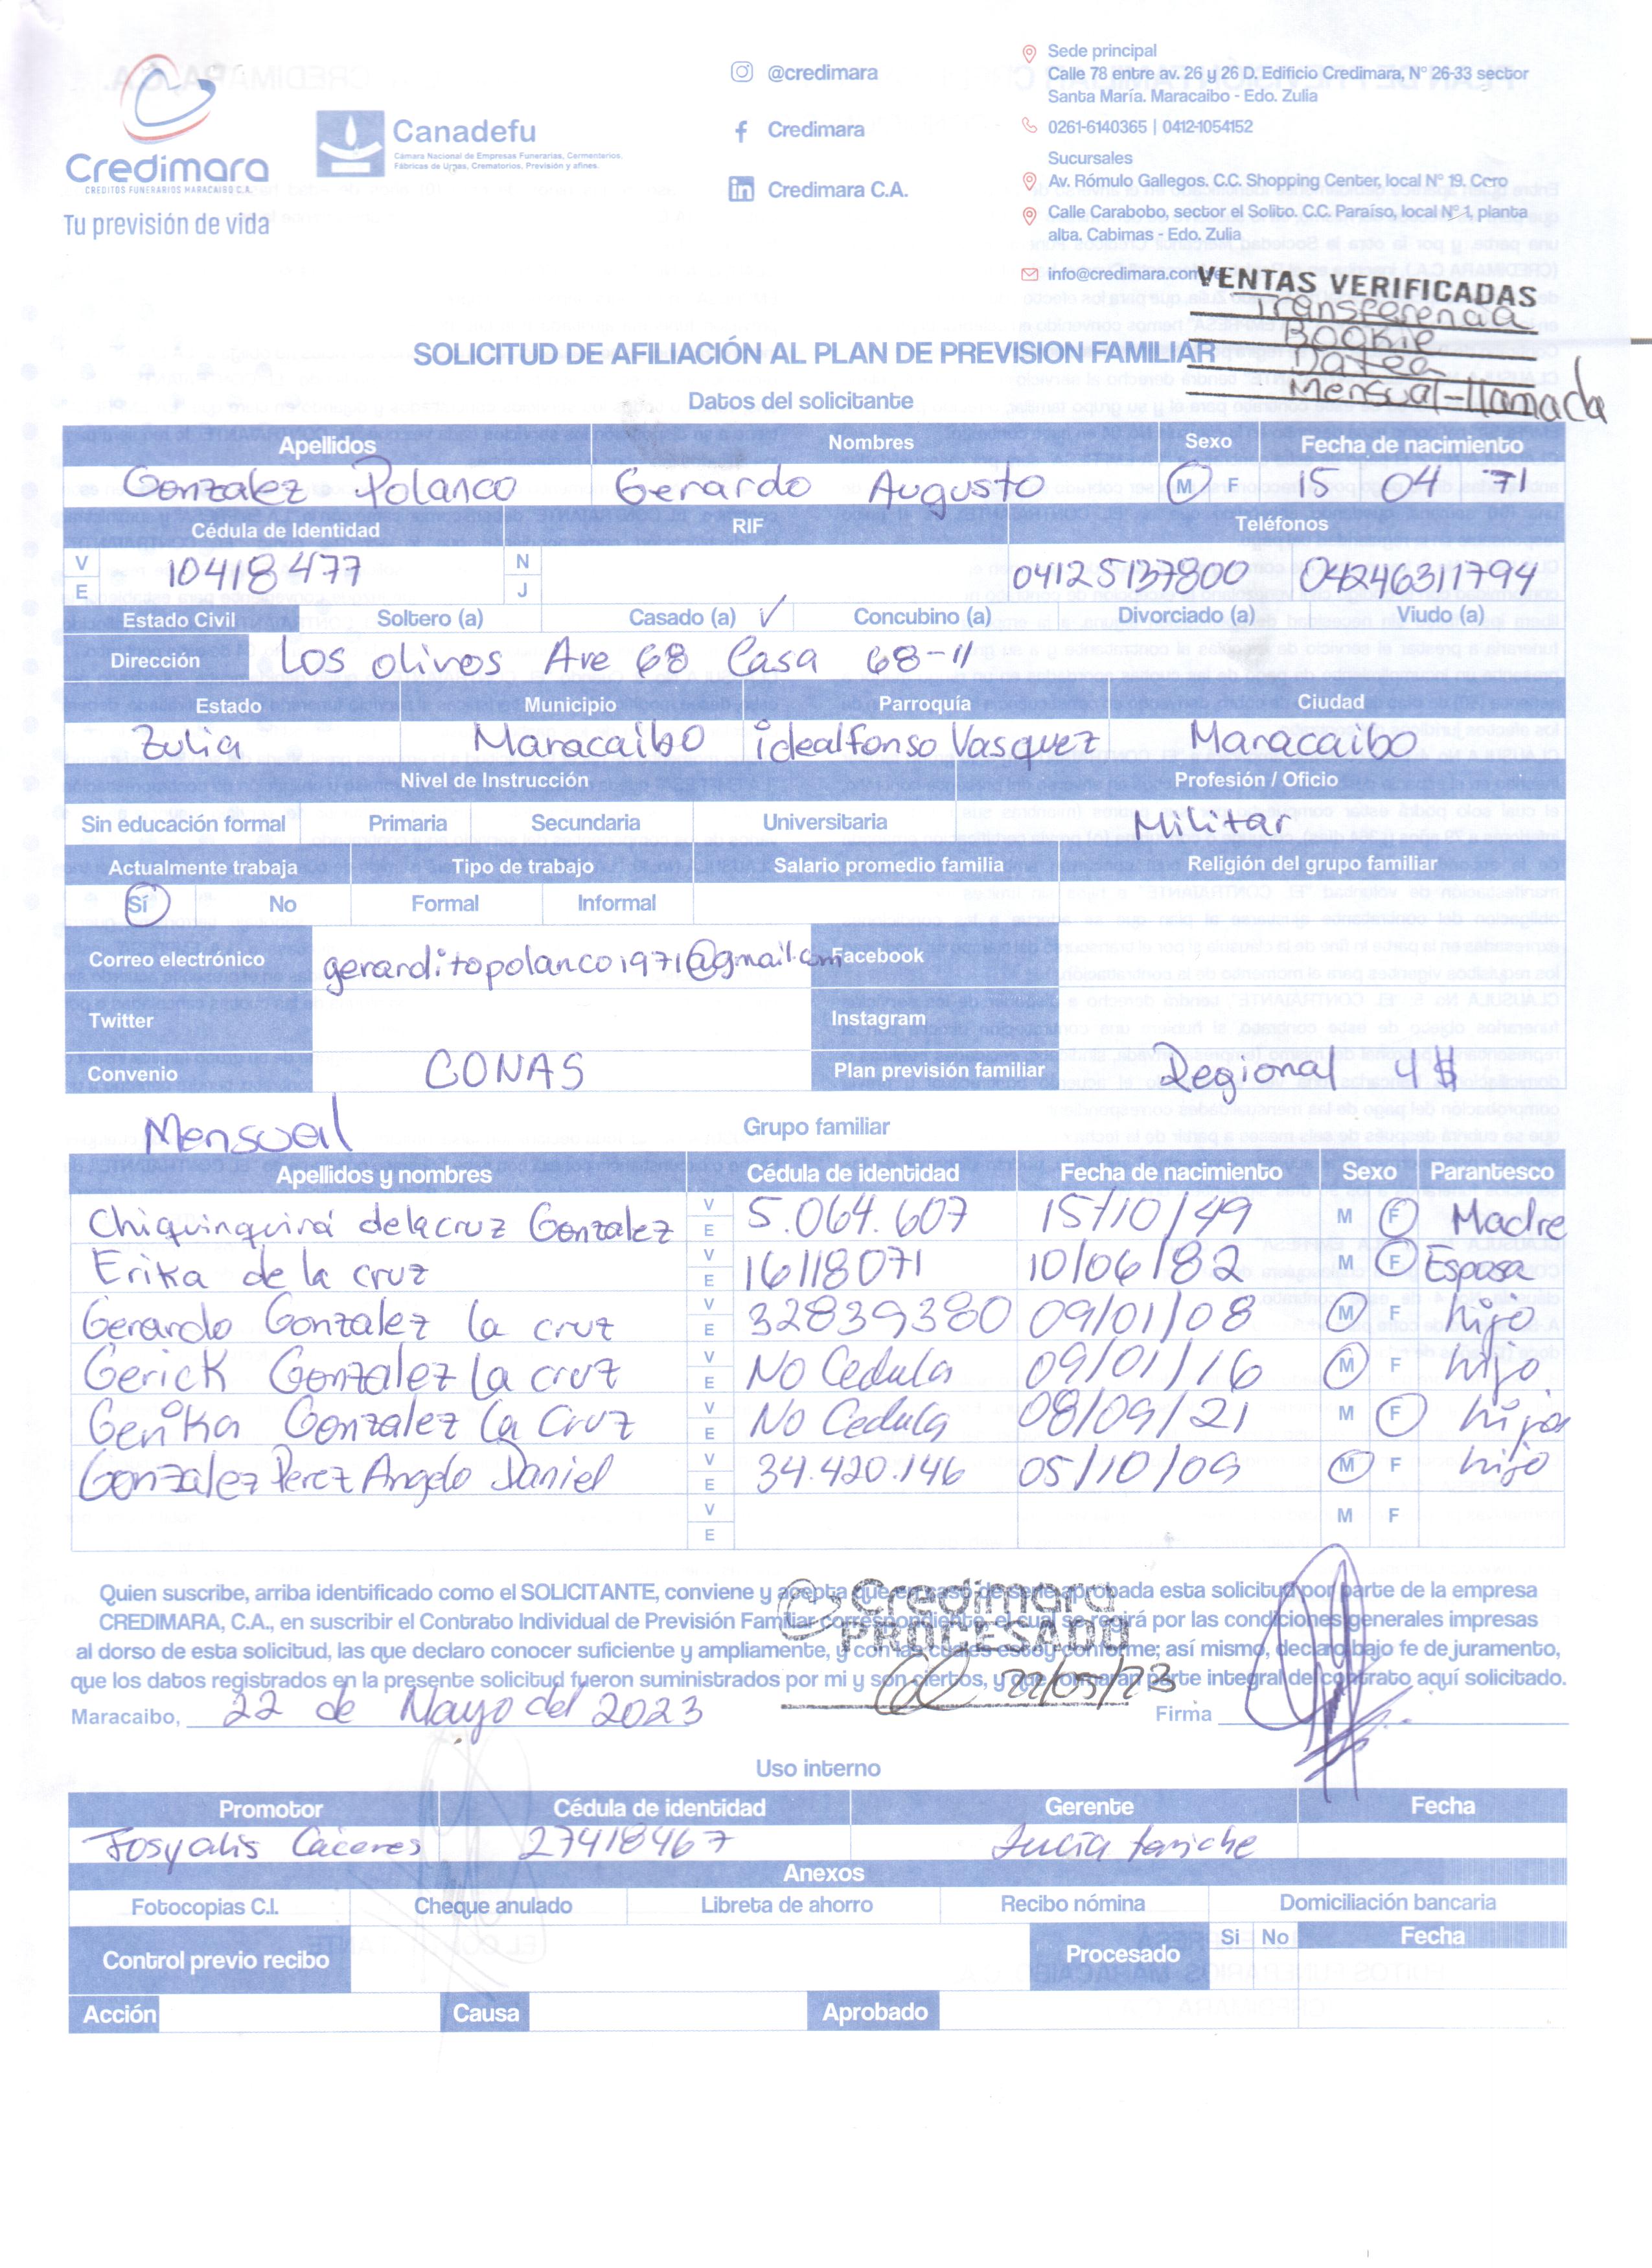 Credimara
CREDITOS FUNERARIOS MARACAIBO C.A.
Tu previsión de vida
Canadefu
Cámara Nacional de Empresas Funerarias, Cermenterios,
Fábricas de Urnas, Crematorios, Previsión y afines.
@credimara
Credimara
Credimara C.A.
Sede principal
Calle 78 entre av. 26 y 26 D. Edificio Credimara, N° 26-33 sector
Santa María. Maracaibo - Edo. Zulia
0261-6140365 | 0412-1054152
Sucursales
Av. Rómulo Gallegos. C.C. Shopping Center, local N° 19. Coro
Calle Carabobo, sector el Solito. C.C. Paraíso, local N° 1, planta
alta. Cabimas - Edo. Zulia
info@credimara.com.ve
VENTAS VERIFICADAS
Transferencia
Mensual - llamada
SOLICITUD DE AFILIACIÓN AL PLAN DE PREVISION FAMILIAR
Datos del solicitante
Apellidos Nombres Sexo Fecha de nacimiento
Gonzalez Polanco Gerardo Augusto M F 15 04 71
Cédula de Identidad RIF Teléfonos
V E 10418477 N J 04125137800 04246311794
Estado Civil Soltero (a) Casado (a) ✓ Concubino (a) Divorciado (a) Viudo (a)
Dirección Los olivos Ave 68 Casa 68-11
Estado Municipio Parroquía Ciudad
Zulia Maracaibo idealfonso Vasquez Maracaibo
Nivel de Instrucción Profesión / Oficio
Sin educación formal Primaria Secundaria Universitaria Militar
Actualmente trabaja Tipo de trabajo Salario promedio familia Religión del grupo familiar
Sí No Formal Informal
Correo electrónico gerarditopolanco1971@gmail.com Facebook
Twitter Instagram
Convenio CONAS Plan previsión familiar Regional 4$
Mensual Grupo familiar
Apellidos y nombres Cédula de identidad Fecha de nacimiento Sexo Parantesco
Chiquinquirá delacruz Gonzalez V E 5.064.607 15/10/49 M F Madre
Erika de la cruz V E 16118071 10/06/82 M F Esposa
Gerardo Gonzalez la cruz V E 32839380 09/01/08 M F hijo
Gerick Gonzalez la cruz V E No Cedula 09/01/16 M F hijo.
Gerika Gonzalez la Cruz V E No Cedula 08/09/21 M F hija
Gonzalez Perez Angelo Daniel V E 34.420.146 05/10/09 M F hijo
V E M F
Quien suscribe, arriba identificado como el SOLICITANTE, conviene y acepta que en caso de serle aprobada esta solicitud por parte de la empresa
CREDIMARA, C.A., en suscribir el Contrato Individual de Previsión Familiar correspondiente, el cual se regirá por las condiciones generales impresas
al dorso de esta solicitud, las que declaro conocer suficiente y ampliamente, y con las cuales estoy conforme; así mismo, declaro bajo fe de juramento,
que los datos registrados en la presente solicitud fueron suministrados por mi y son ciertos, y que forman parte integral del contrato aquí solicitado.
Credimara
PROCESADO
22/05/23
Maracaibo, 22 de Mayo del 2023 Firma
Uso interno
Promotor Cédula de identidad Gerente Fecha
Josyalis Caceres 27418467 Lucía
Anexos
Fotocopias C.I. Cheque anulado Libreta de ahorro Recibo nómina Domiciliación bancaria
Control previo recibo Procesado Si No Fecha
Acción Causa Aprobado